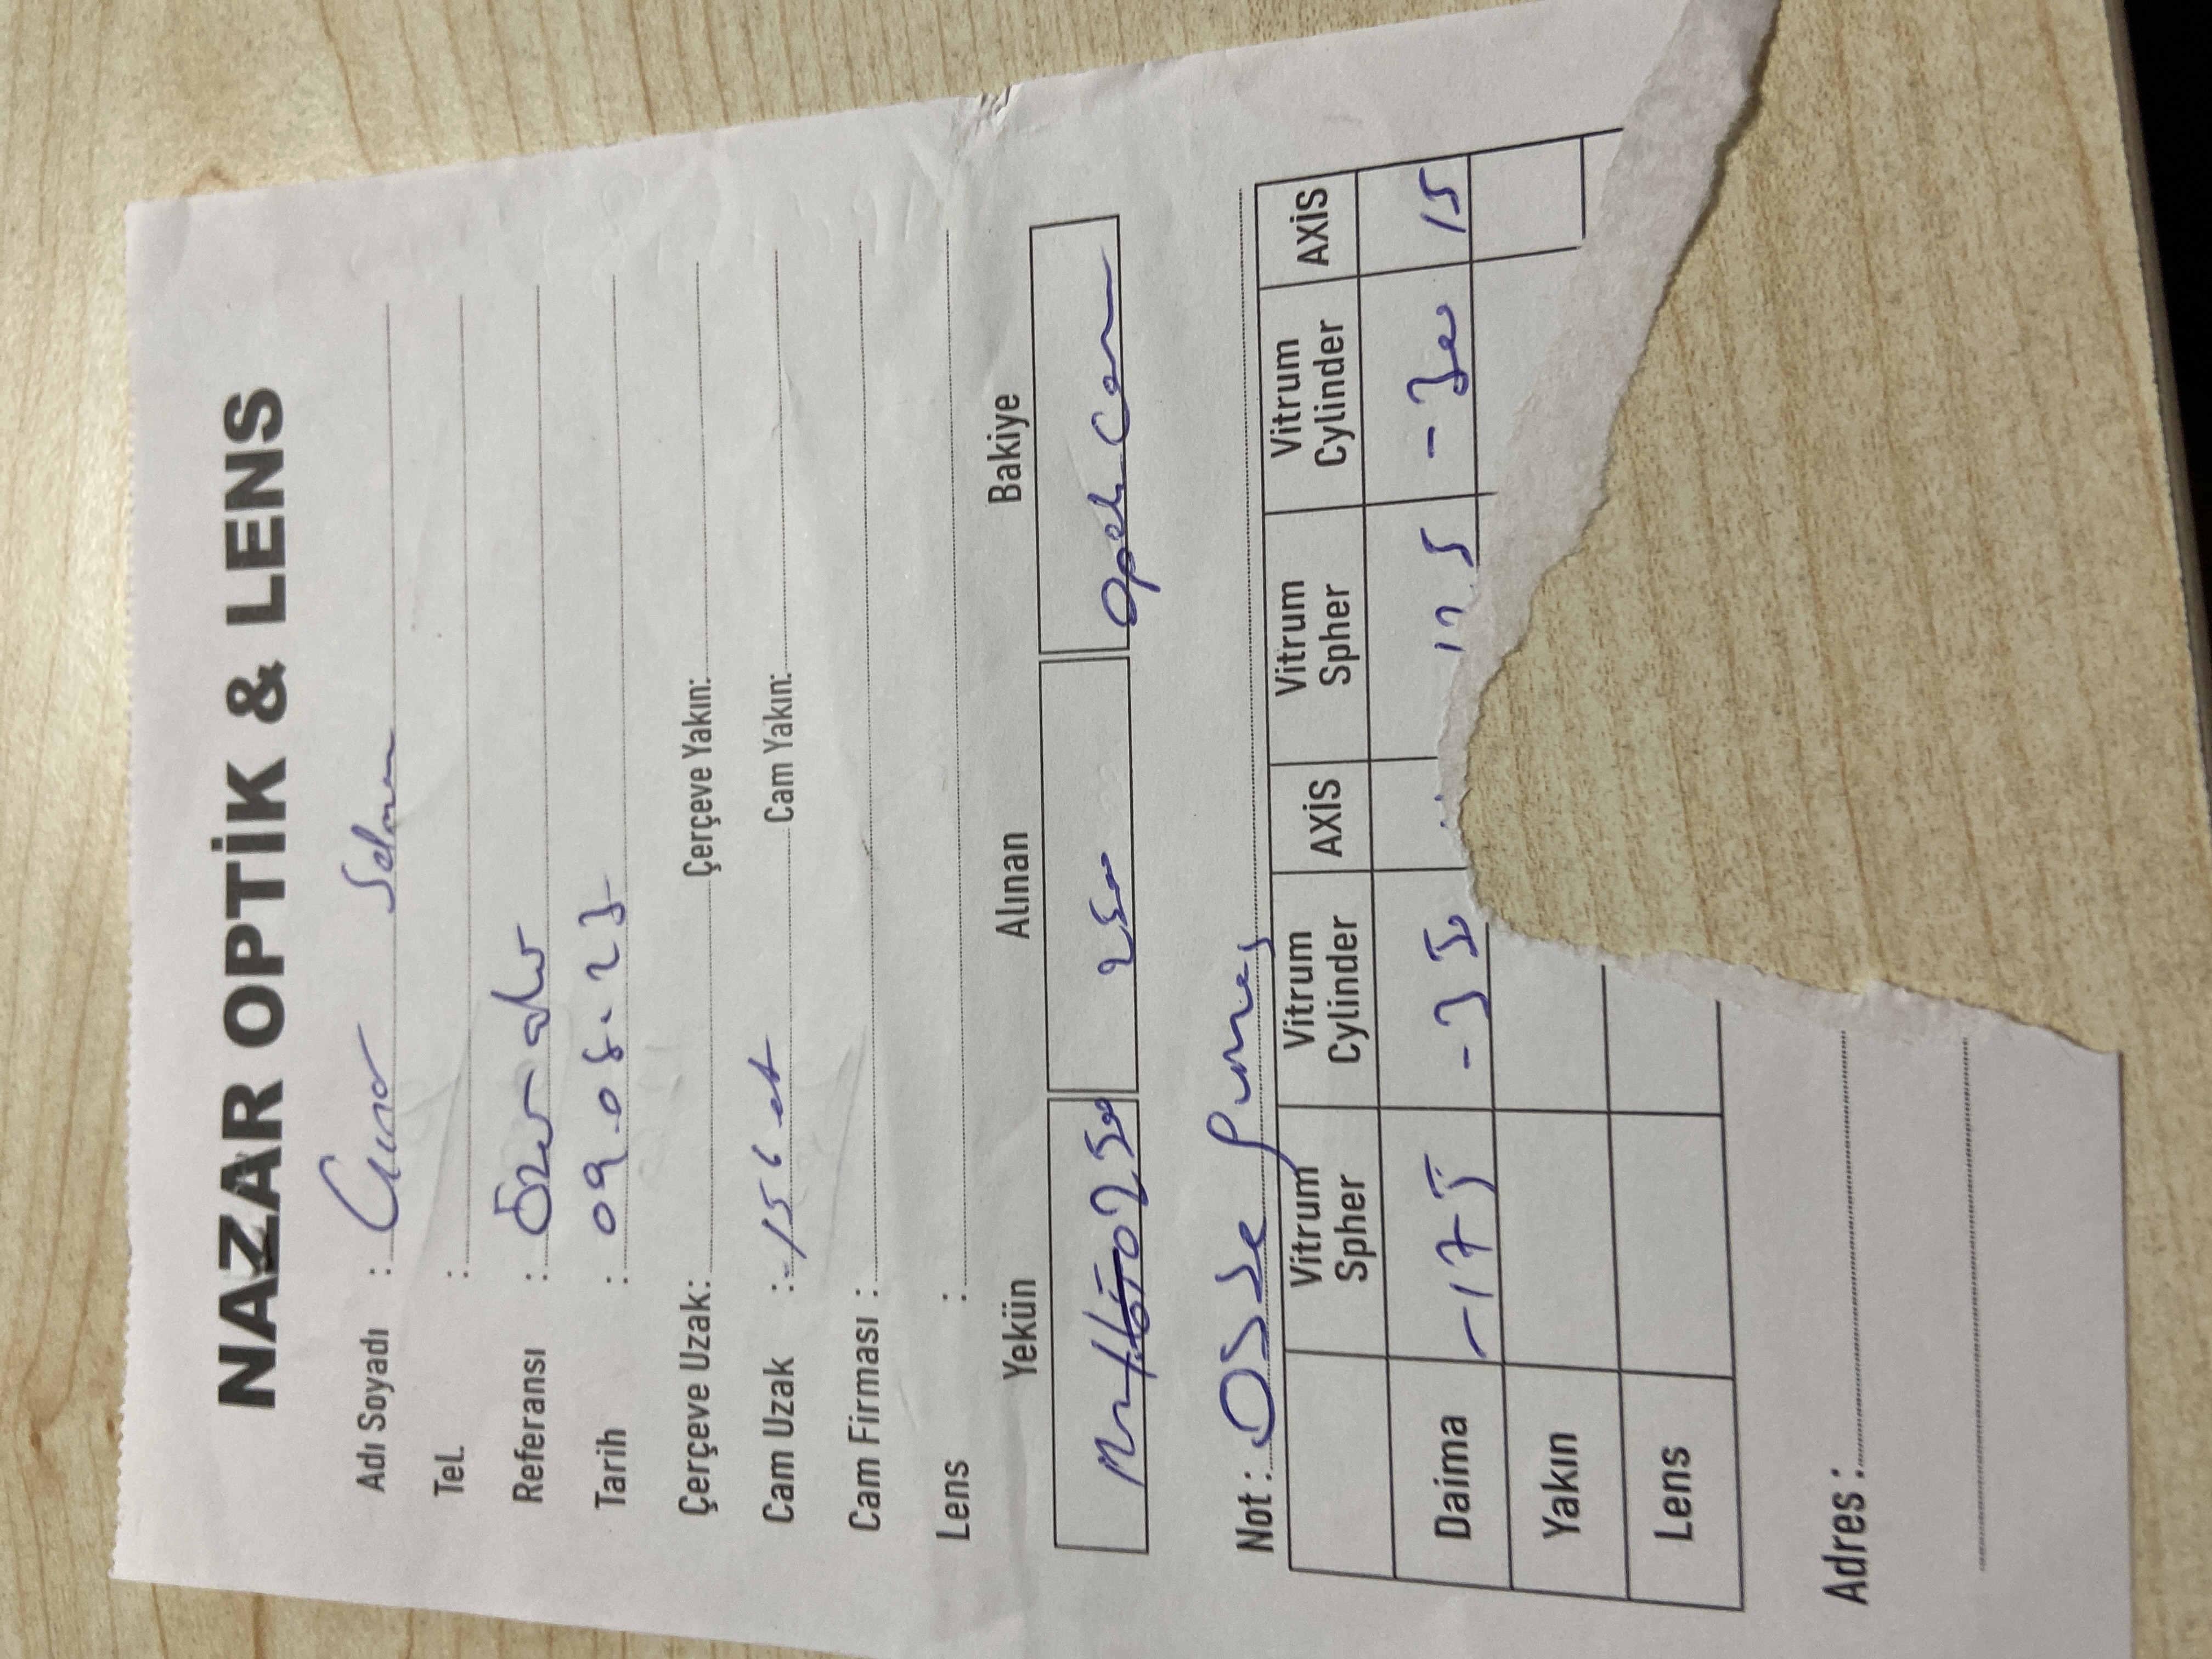 NAZAR OPTİK & LENS
Adı Soyadı : Selman
Tel. :
Referansı :
Tarih : 09.08.23
Çerçeve Uzak: Çerçeve Yakın:
Cam Uzak : 156 Cam Yakın:
Cam Firması :
Lens :
Yekün Alınan Bakiye
2500 2500 Opak Cam
Not : Osse güneş
Vitrum Spher Vitrum Cylinder AXİS Vitrum Spher Vitrum Cylinder AXİS
Daima -175 -350 -300 15
Yakın
Lens
Adres :